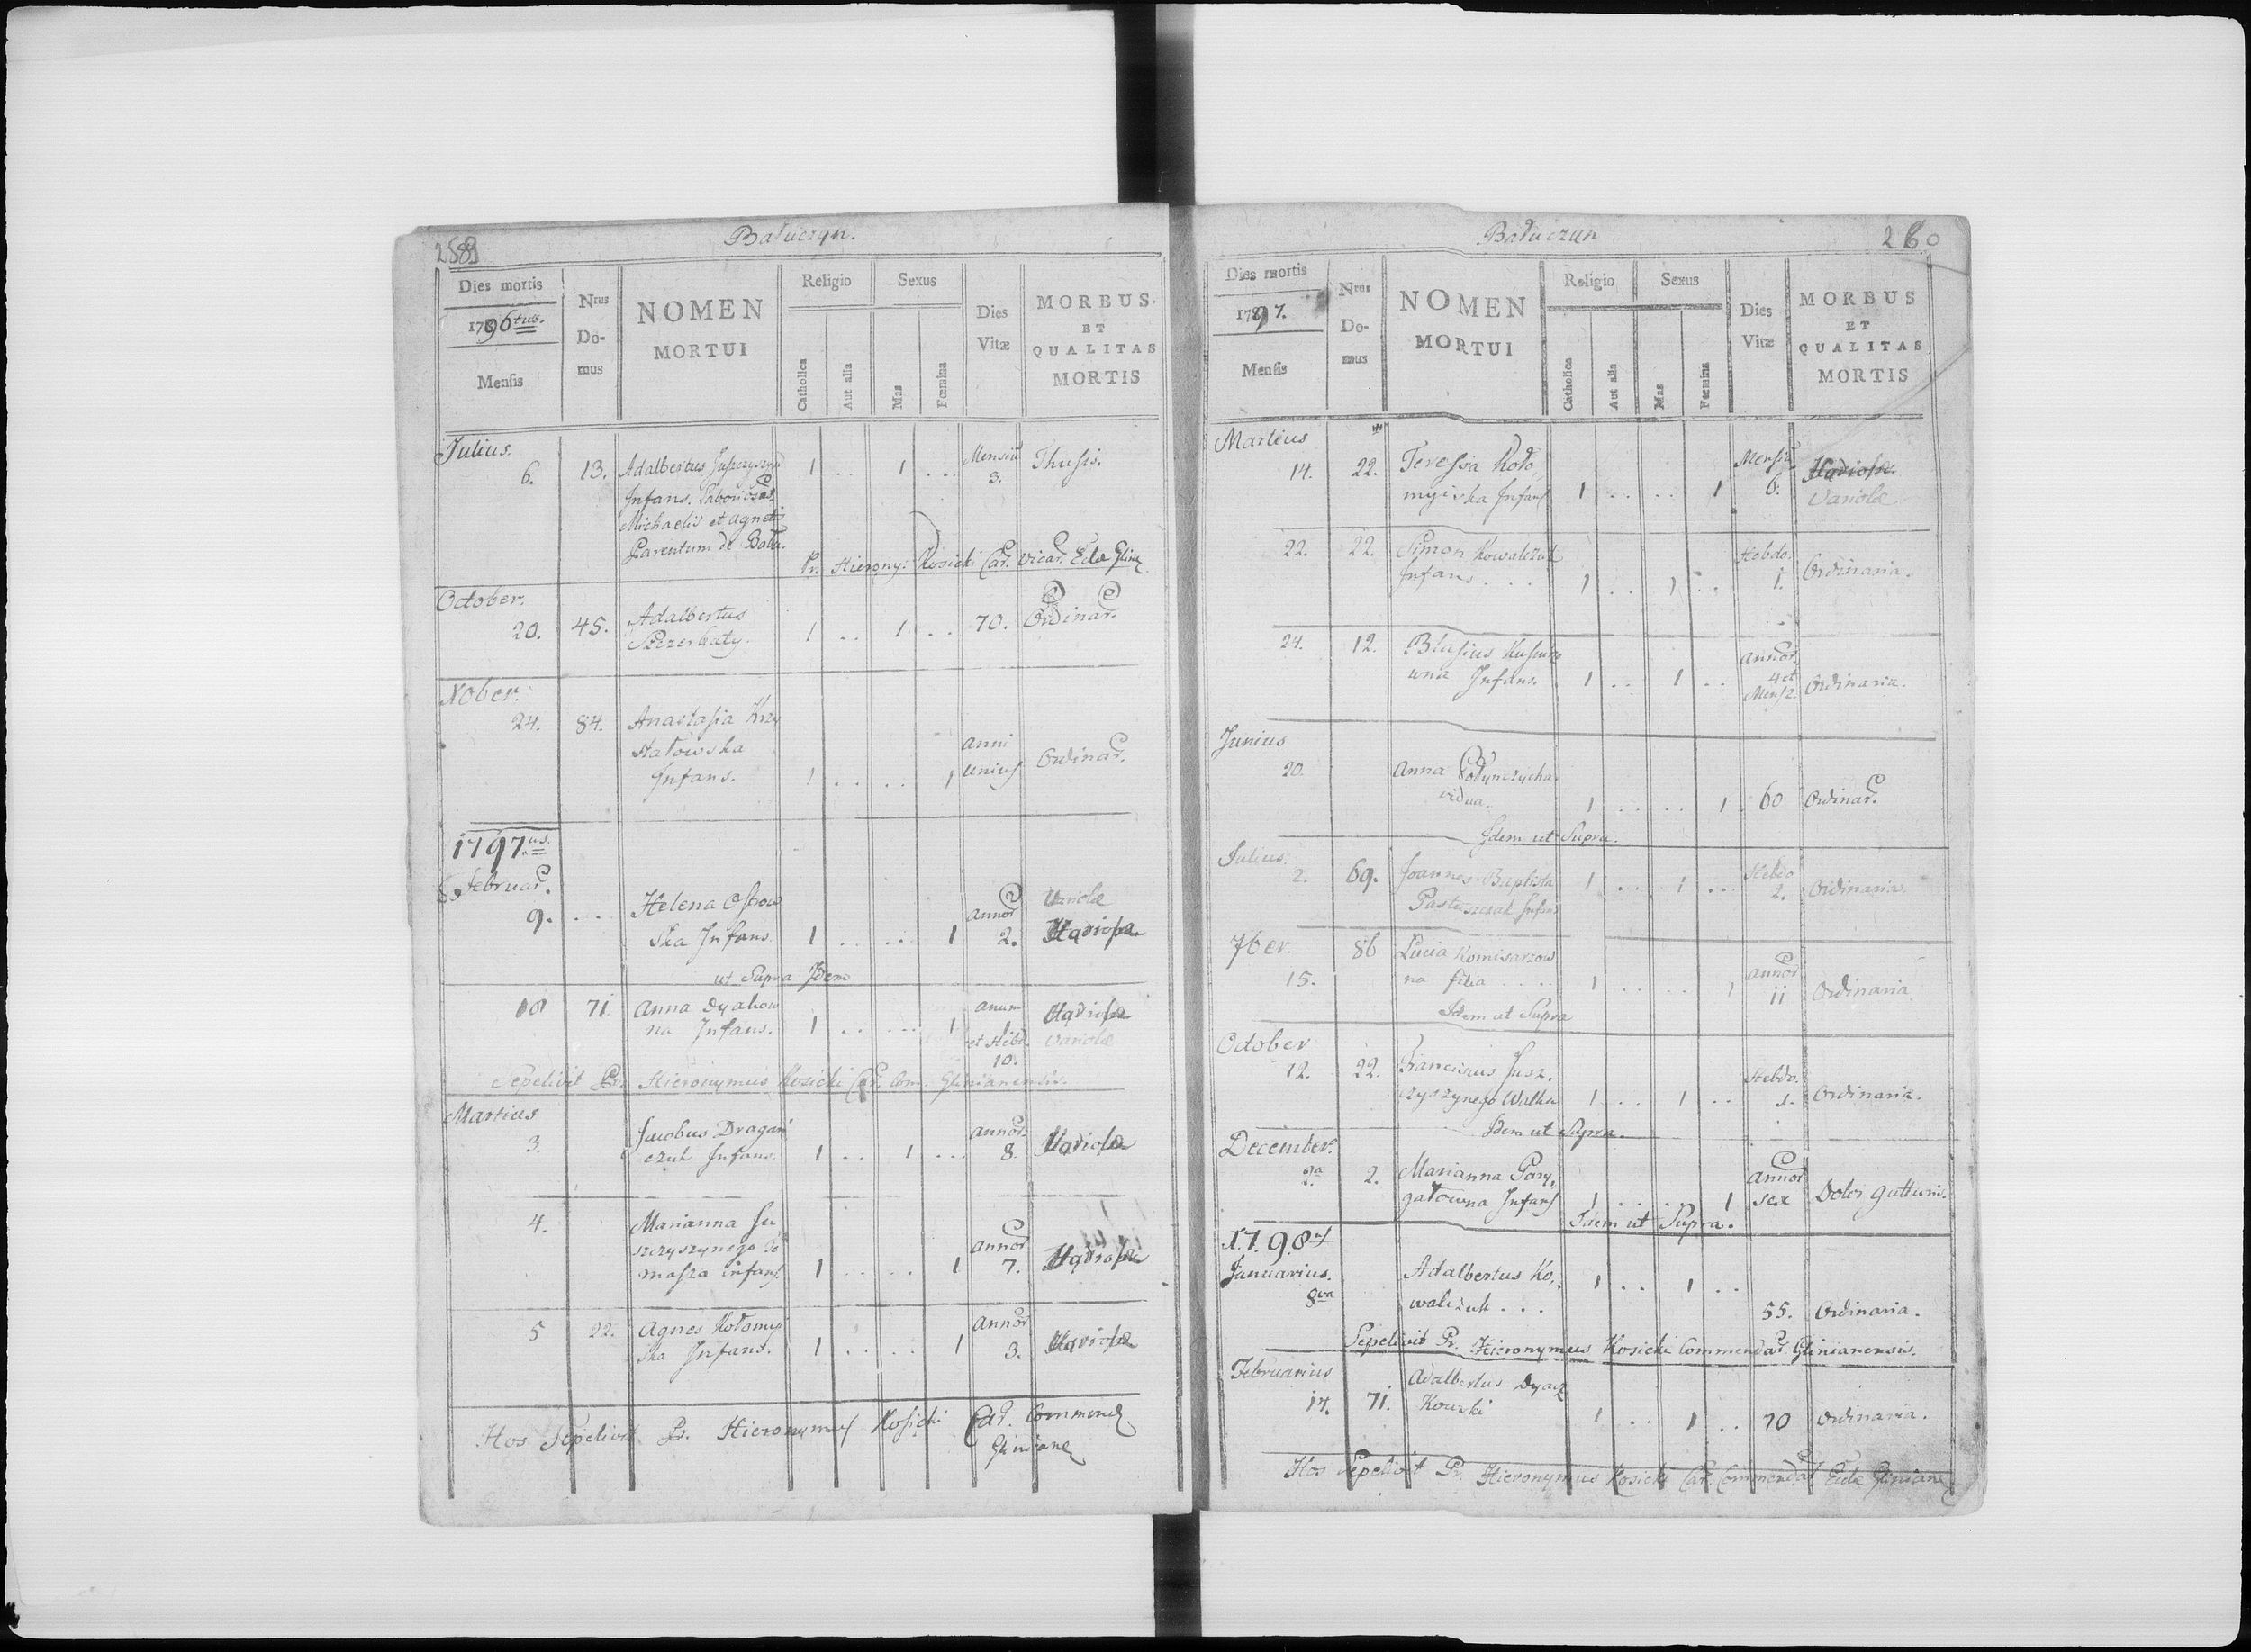 2589
Batuczyn.
Dies mortis
1796tus.
Mensis
Nrus
Do-
mus
NOMEN
MORTUI
Religio
Catholica
Aut alia
Sexus
Mas
Fœmina
Dies
Vitæ
MORBUS
ET
QUALITAS
MORTIS
Julius.
6. 13. Adalbertus 1 .. 1 .. Mensiu Thusis.
Infans. Laborios. 3.
Michaelis et Agnetis
Parentum de Batu.
Pr. Hierony: Kosicki Car. Vicar. Glin
October.
20. 45. Adalbertus 1 .. 1 .. 70. Ordinar.
Szczerbaty.
Xober.
24. 84. Anastasia Krzy
statowska Anni
Infans. 1 .. .. 1 Unius Ordinar.
1797us.
Februar.
9. ... Helena Ostrow Annor Variolæ
ska Infans. 1 .. ... 1 2.
ut Supra Idem
10 71. Anna Dyakow Anum
na Infans. 1 .. ... 1 et Hebd. Variolæ
10.
Sepelivit Pr. Hieronymus Kosicki Car. Com. Glinianensis.
Martius
3. Jacobus Dragań Annor.
czuk Infans. 1 .. 1 ... 8.
4. Marianna Ju
szczyszynego To Annor
masza infans 1 .. .. 1 7.
5 22. Agnes Kotomyj Annor
ska Infans. 1 .. .. 1 3.
Hos Sepelivit Pr. Hieronymus Kosicki Car. Commend
Gliniane
Batuczyn
260
Dies mortis
1797.
Mensis
Nrus
Do-
mus
NOMEN
MORTUI
Religio
Catholica
Aut alia
Sexus
Mas
Fœmina
Dies
Vitæ
MORBUS
ET
QUALITAS
MORTIS
Martius
14. 22. Teressa Koto Mensiu
myiska Infans 1 .. .. 1 6. Variolæ
22. 22. Simon Kowalczuk Hebdo.
Infans ... 1 .. 1 .. 1. Ordinaria.
24. 12. Blasius Annor.
Infans. 1 .. 1 .. 4 et Ordinaria.
Mens 2.
Junius
20. Anna
vidua. 1 .. .. 1 60 Ordinar.
Idem ut Supra.
Julius.
2. 69. Joannes Baptista 1 .. 1 ... Hebdo
Pastuszczak Infans 2. Ordinaria.
7ber. 86 Lucia Komisarzow Annor
15. na filia .... 1 .. .. 1 11 Ordinaria
Idem ut Supra
October
12. 22. Franciscus Jusz. Hebdo.
czyszynego Walka 1 .. 1 .. 1. Ordinaria.
Idem ut Supra.
December.
2a 2. Marianna Pary, Annor
gatowna Infans 1 .. .. 1 sex Dolor gutturis.
Idem ut Supra.
1798
Januarius. Adalbertus Ko, 1 .. 1 ..
8va walczuk ... 55. Ordinaria.
Sepelivit Pr. Hieronymus Kosicki Commendar Glinianensis.
Februarius
17. 71. Adalbertus Dyacz
Kowski 1 .. 1 .. 70 Ordinaria.
Hos Sepelivit Pr. Hieronymus Kosicki Car. Commendar Gliniane